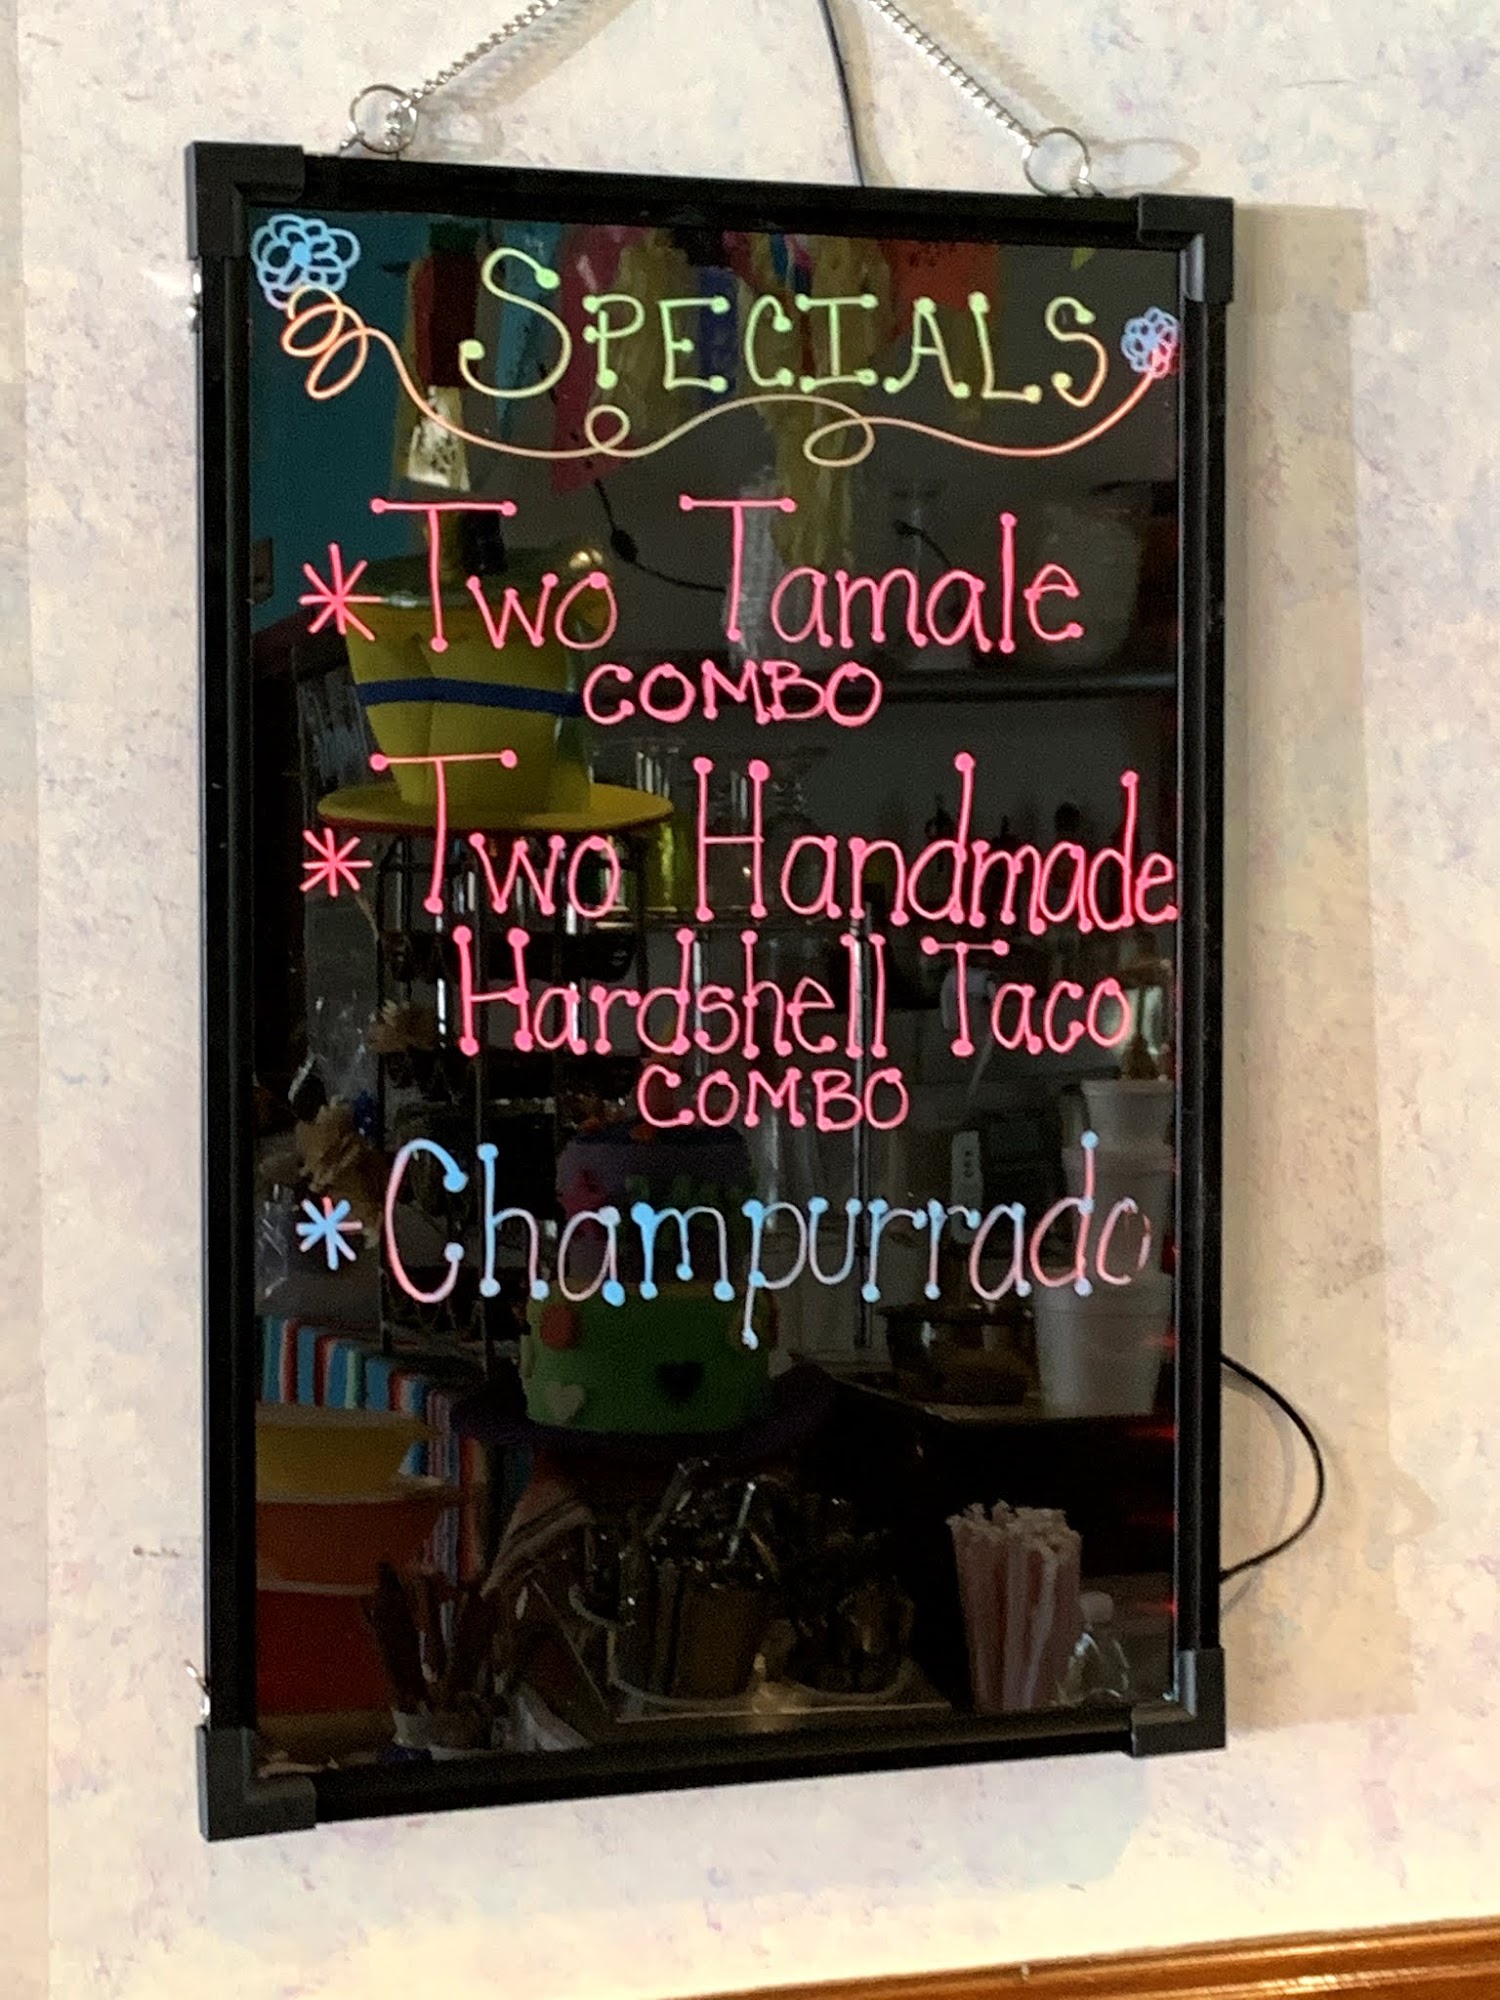 SPECIALS
* Two Tamale
COMBO
* Two Handmade
Hardshell Taco
COMBO
* Champurrado